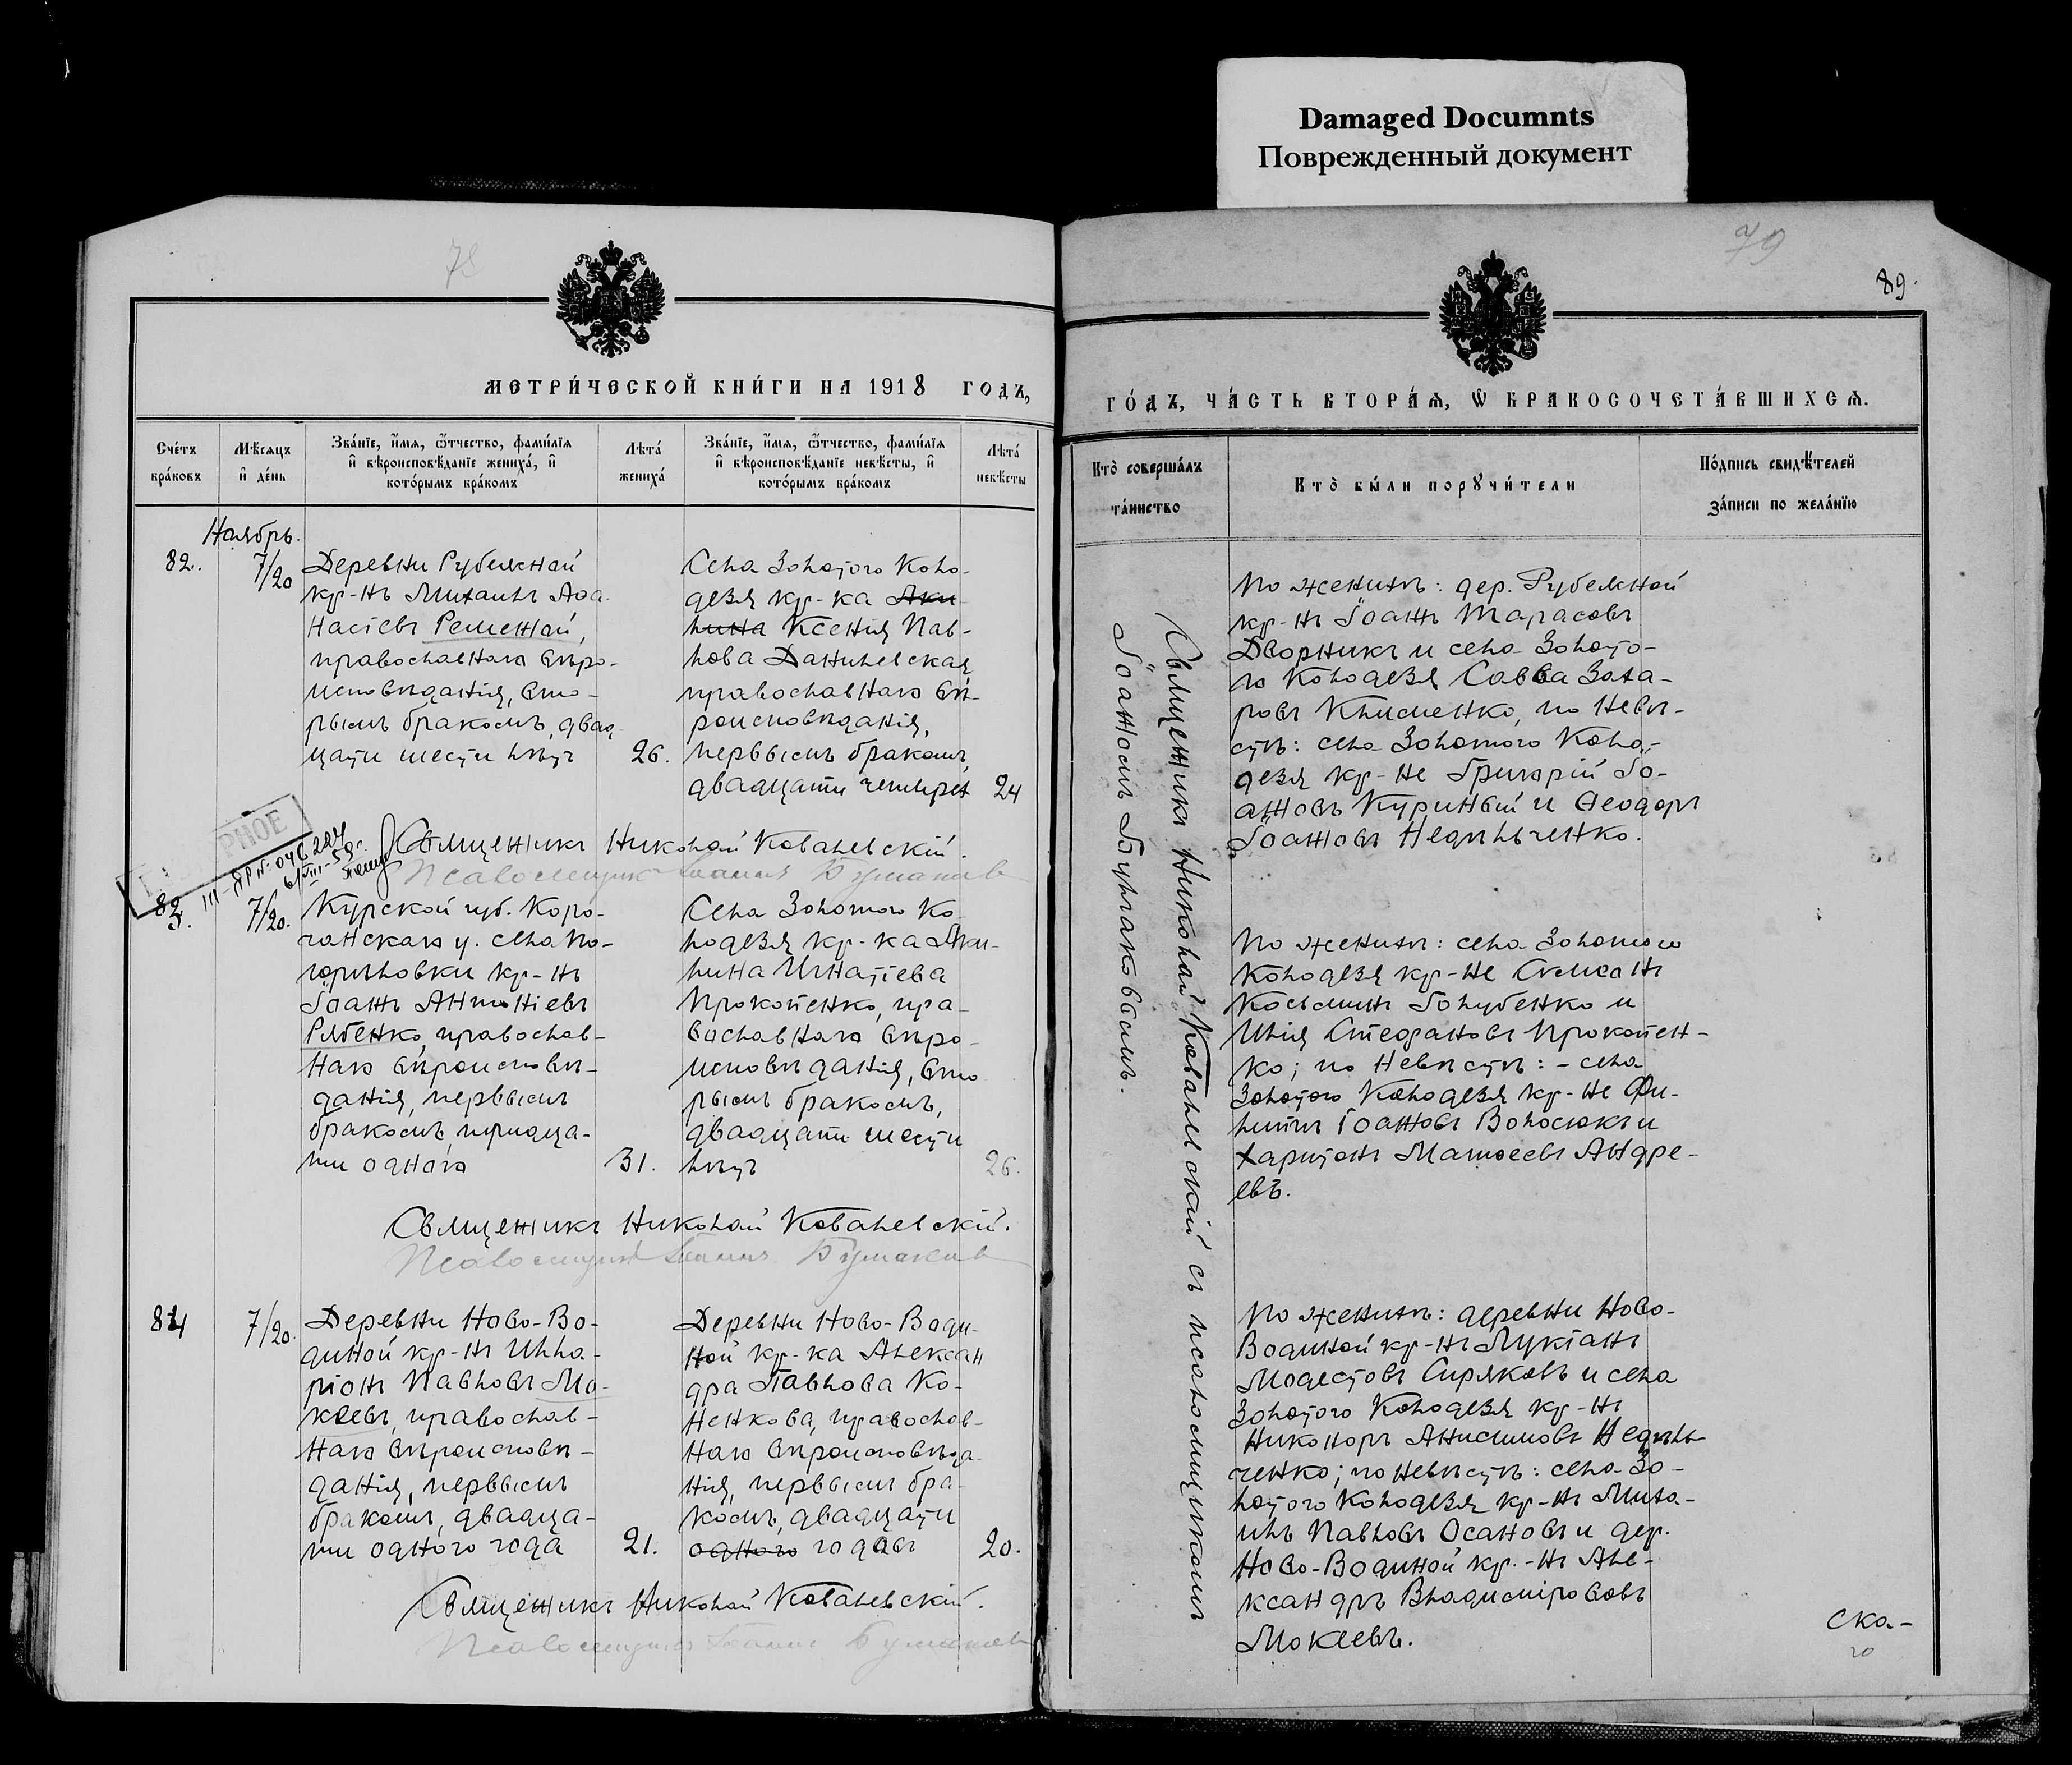 Damaged Documnts
Поврежденный документ
79
89.
МЕТРИ́ЧЕСКОЙ КНИ́ГИ НА 1918 ГОДЪ,
ГО́ДЪ, ЧА́СТЬ ВТОРА́Ѧ, Ѽ БРАКОСОЧЕТА́ВШИХСѦ.
Сче́тъ бра́ковъ
Мѣ́сѧцъ и҆ де́нь
Зва́нїе, и҆́мѧ, ѻ҆́тчество, фами́лїѧ и҆ вѣроисповѣ́данїе жениха́, и҆ кото́рымъ бра́комъ
Лѣта́ жениха́
Зва́нїе, и҆́мѧ, ѻ҆́тчество, фами́лїѧ и҆ вѣроисповѣ́данїе невѣ́сты, и҆ кото́рымъ бра́комъ
Лѣта́ невѣ́сты
Кто̀ соверша́лъ та́инство
Кто̀ бы́ли порꙋчи́тели
По́дпись свидѣ́телей за́писи по жела́нїю
Ноябрь.
82.
7/20
Деревни Рубежной
кр-нъ Михаилъ Аѳа-
насіевъ Ремежай,
православнаго вѣро-
исповѣданія, вто-
рымъ бракомъ, двад-
цати шести лѣтъ
26.
Села Золотого Коло-
дезя кр-ка Аки-
лина Ксенія Пав-
лова Данилевская,
православнаго вѣ-
роисповѣданія,
первымъ бракомъ,
двадцати четырех
24
Священникъ Николай Ковалевскій.
83.
7/20.
Курской губ. Коро-
чанскаго у. села По-
горѣловки кр-нъ
Іоаннъ Антоніевъ
Рябенко, православ-
наго вѣроисповѣ-
данія, первымъ
бракомъ, тридца-
ти одного
31.
Села Золотого Ко-
лодезя кр-ка Аки-
лина Игнатіева
Прокопенко, пра-
вославнаго вѣро-
исповѣданія, вто-
рымъ бракомъ,
двадцати шести
лѣтъ
26.
Священникъ Николай Ковалевскій.
84
7/20.
Деревни Ново-Во-
диной кр-нъ Илла-
ріонъ Павловъ Мо-
кеевъ, православ-
наго вѣроисповѣ-
данія, первымъ
бракомъ, двадца-
ти одного года
21.
Деревни Ново-Води-
ной кр-ка Алексан
дра Павлова Ко-
ненкова, православ-
наго вѣроисповѣда-
нія, первымъ бра-
комъ, двадцати
одного годовъ
20.
Священникъ Николай Ковалевскій.
Священникъ Николай Ковалевскій съ псаломщикомъ
Іоанномъ
По женихѣ: дер. Рубежной
кр-нъ Іоаннъ Тарасовъ
Дворникъ и села Золото-
го Колодезя Савва Заха-
ровъ Клименко, по невѣ-
стѣ: села Золотого Коло-
дезя кр-не Григорій Іо-
анновъ Куриный и Ѳеодоръ
Іоанновъ Недильченко.
По женихѣ: села Золотого
Колодезя кр-не Симеонъ
Косьминъ Голубенко и
Илія Стефановъ Прокопен-
ко; по невѣстѣ: - села
Золотого Колодезя кр-не Фи-
липпъ Іоанновъ Волосюкъ и
Харитонъ Матѳеевъ Андре-
евъ.
По женихѣ: деревни Ново-
Водиной кр-нъ Лукіанъ
Модестовъ Сиряковъ и села
Золотого Колодезя кр-нъ
Никоноръ Анисимовъ Недиль
ченко; по невѣстѣ: села Зо-
лотого Колодезя кр-нъ Миха-
илъ Павловъ Осановъ и дер.
Ново-Водиной кр.-нъ Але-
ксандръ Владиміровъ
Мокеевъ.